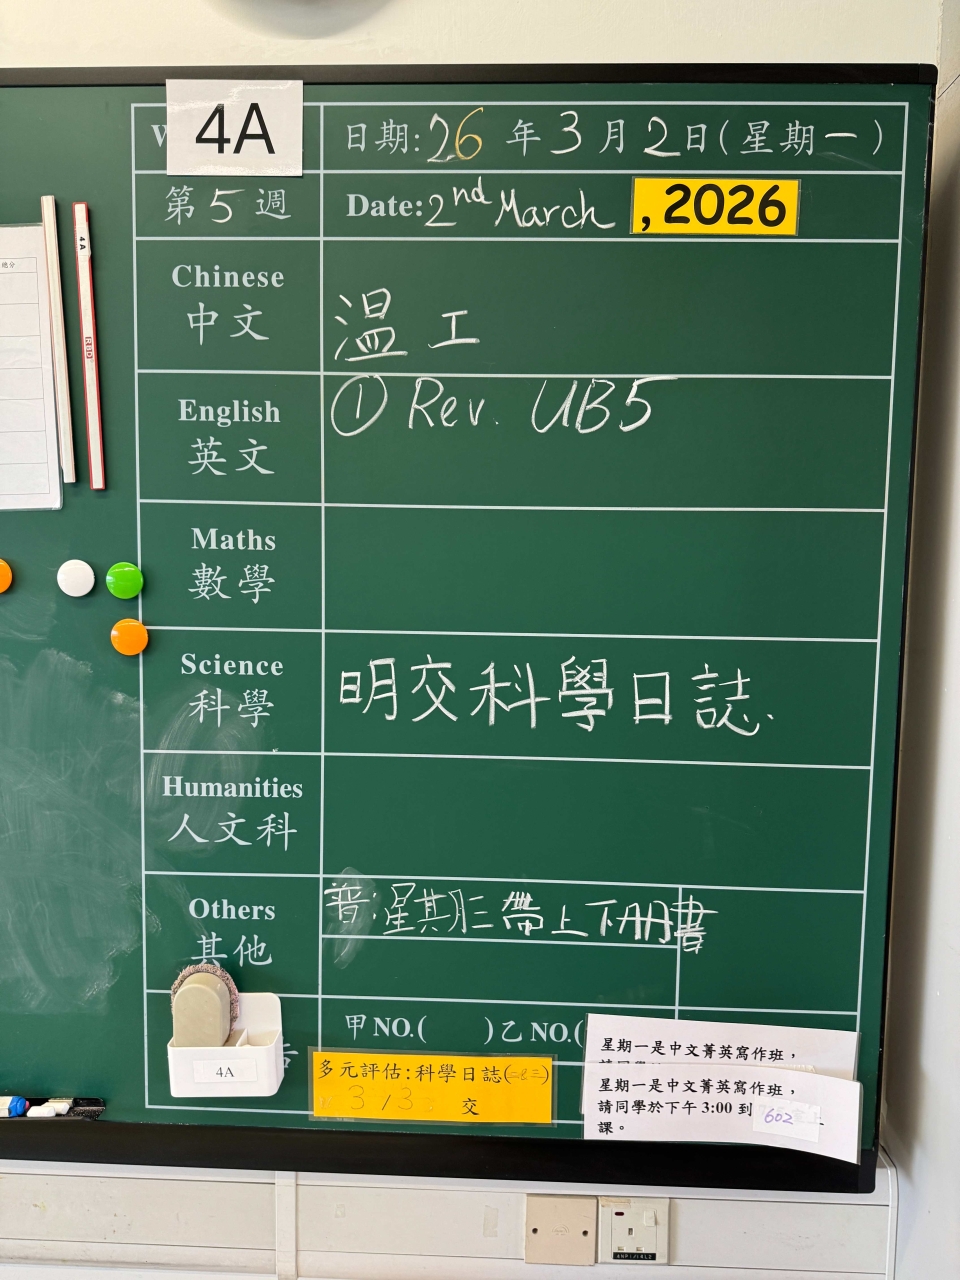 4A
日期:26年3月2日(星期一)
第5週
Date:2nd March , 2026
Chinese
中文
溫工
English
英文
① Rev. UB5
Maths
數學
Science
科學
明交科學日誌.
Humanities
人文科
Others
其他
普:星其月三帶上下冊書
甲NO.( )乙NO.(
星期一是中文菁英寫作班，
多元評估:科學日誌
3/3 交
星期一是中文菁英寫作班，
請同學於下午3:00到 602
課。
4A
4A